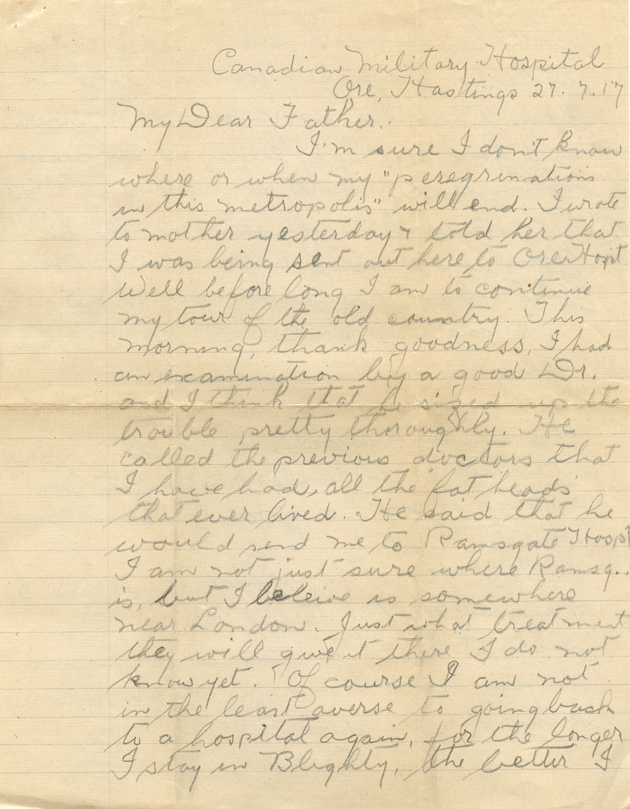 Canadian Military Hospital
Ore, Hastings 27.7.17
My Dear Father.
I'm sure I don't know
where or when my "peregrinations
in this metropolis" will end. I wrote
to mother yesterday & told her that
I was being sent out here to Ore Hospt
Well before long I am to continue
my tour of the old country. This
morning, thank goodness, I had
an examination by a good Dr.
and I think that he sized up the
trouble pretty thoroughly. He
called the previous doctors that
I have had, all the fat heads
that ever lived. He said that he
would send me to Ramsgate Hospt
I am not just sure where Ramsg..
is, but I beleive is somewhere
near London. Just what treatment
they will give it there I do not
know yet. Of course I am not
in the least averse to going back
to a hospital again, for the longer
I stay in Blighty, the better I